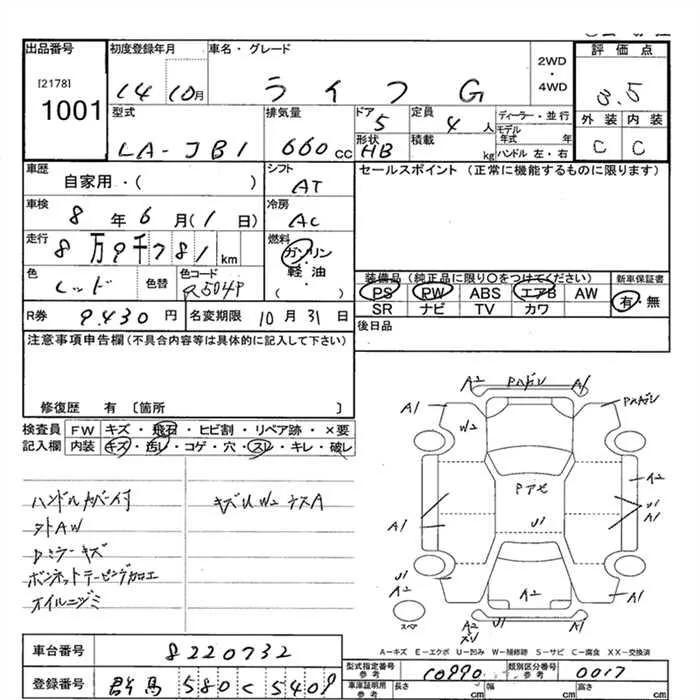 出品番号
[2178]
1001
初度登録年月
14 10月
車名・グレード
ライフ G
2WD
・
4WD
評価点
3.5
外装 内装
C C
型式
LA-JB1
排気量
660 cc
ドア
5
定員
4 人
形状
HB
積載
kg
ディーラー・並行
モデル
年式 年
ハンドル 左・右
車歴
自家用・( )
シフト
AT
セールスポイント (正常に機能するものに限ります)
車検
8 年 6 月 (1 日)
冷房
AC
走行
8万9千781 km
燃料
ガソリン
軽油
( )
色
レッド
色替
色コード
R504P
装備品(純正品に限り○をつけてください)
新車保証書
PS PW ABS エアB AW
SR ナビ TV カワ
有・無
R券
9.430 円
名変期限
10月31日
後日品
注意事項申告欄(不具合内容等は具体的に記入して下さい)
修復歴 有 〔箇所 〕
検査員
記入欄
FW キズ・飛石・ヒビ割・リペア跡・×要
内装 キズ・汚レ・コゲ・穴・スレ・キレ・破レ
ハンドルカバー付
キズU W2 テスA
外AW
Dミラーキズ
ボンネットテーピング加工
オイルニジミ
A2 A1
A1 W2
A2
U1
A1
A1
U1
A2
A2
U1
A1
スペア
A-キズ E-エクボ U-凹み W-補修跡 S-サビ C-腐食 XX-交換済
車台番号
8220732
登録番号
群馬 580 C 5409
型式指定番号
参考
10990
類別区分番号
参考
0017
車庫証明用
参考
長さ
cm
幅
cm
高さ
cm